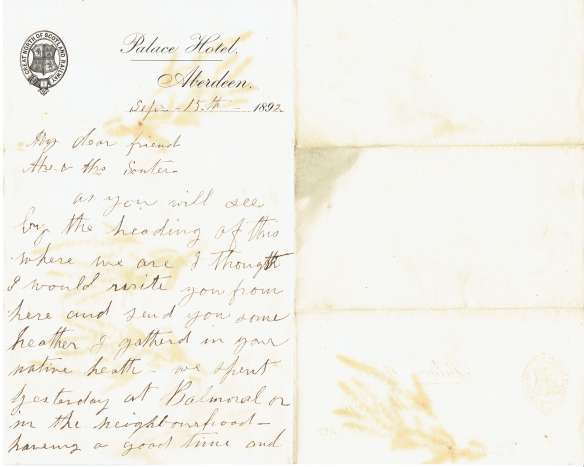 GREAT NORTH OF SCOTLAND RAILWAY
Palace Hotel,
Aberdeen.
Sep. 15th 1892
My dear friend
Mr & Mrs Souter
as you will see
by the heading of this
where we are I thought
I would write you from
here and send you some
heather I gathered in your
native heath - we spent
yesterday at Balmoral or
in the neighbourhood -
having a good time and